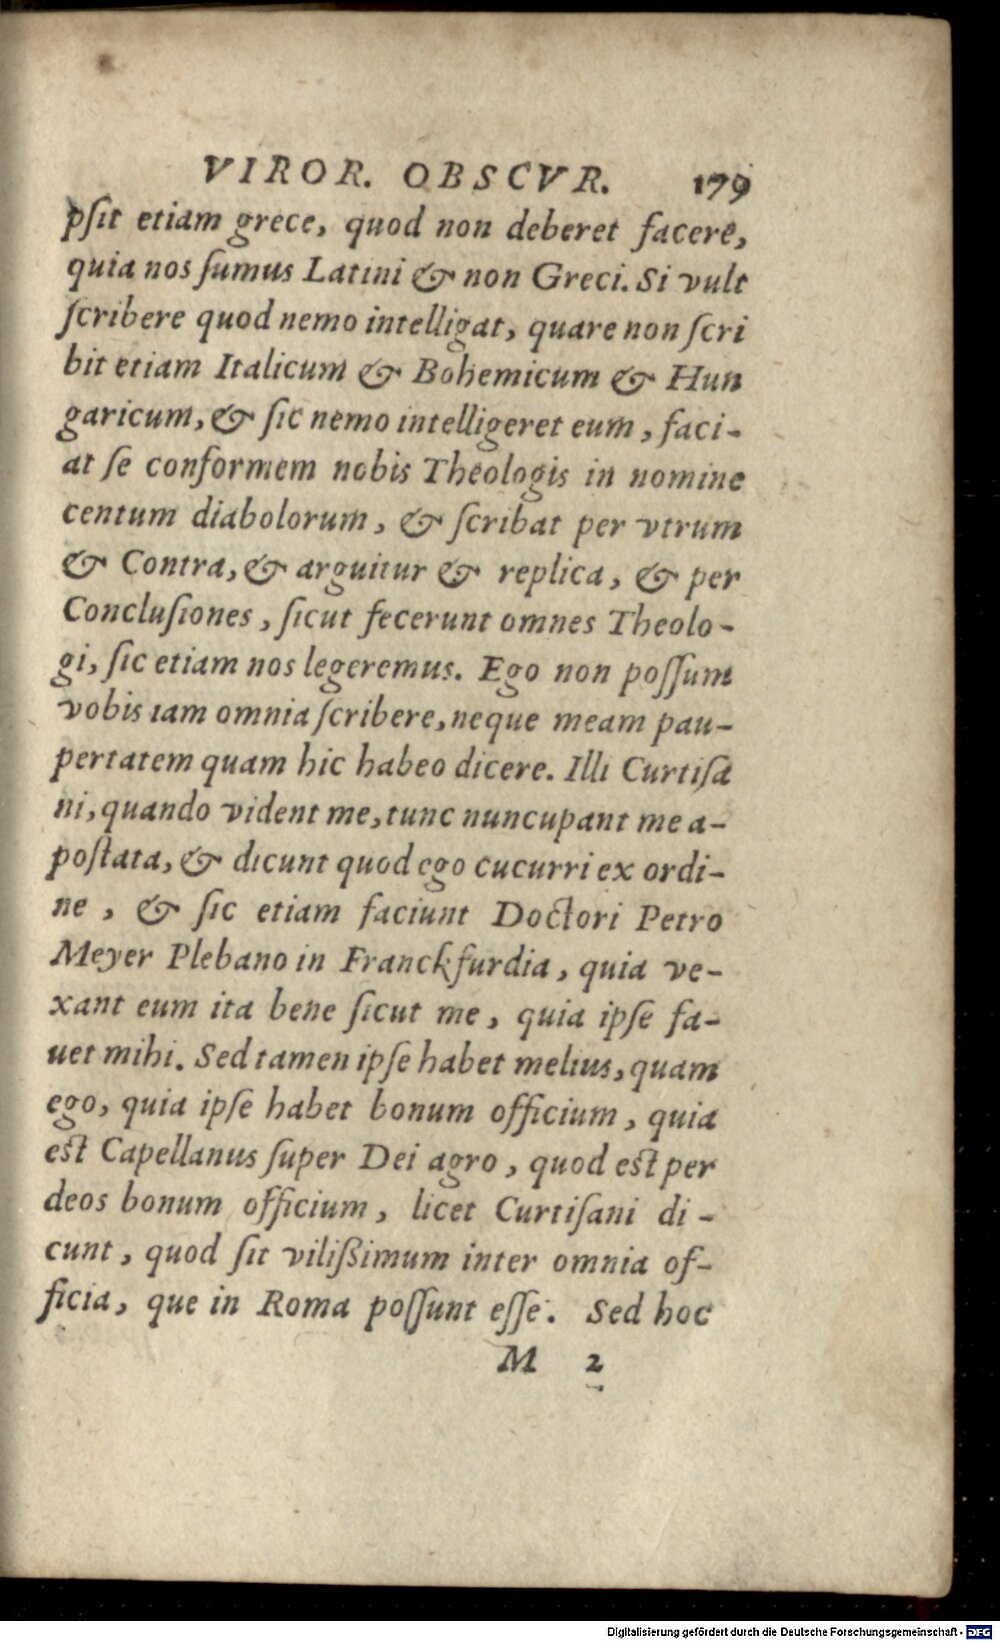 VIROR. OBSCVR. 179
pſit etiam grece, quod non deberet facere,
quia nos ſumus Latini & non Greci. Si vult
ſcribere quod nemo intelligat, quare non ſcri
bit etiam Italicum & Bohemicum & Hun
garicum, & ſic nemo intelligeret eum, faci-
at ſe conformem nobis Theologis in nomine
centum diabolorum, & ſcribat per vtrum
& Contra, & arguitur & replica, & per
Concluſiones, ſicut fecerunt omnes Theolo-
gi, ſic etiam nos legeremus. Ego non poſſum
vobis iam omnia ſcribere, neque meam pau-
pertatem quam hic habeo dicere. Illi Curtiſa
ni, quando vident me, tunc nuncupant me a-
poſtata, & dicunt quod ego cucurri ex ordi-
ne, & ſic etiam faciunt Doctori Petro
Meyer Plebano in Franckfurdia, quia ve-
xant eum ita bene ſicut me, quia ipſe fa-
uet mihi. Sed tamen ipſe habet melius, quam
ego, quia ipſe habet bonum officium, quia
eſt Capellanus ſuper Dei agro, quod eſt per
deos bonum officium, licet Curtiſani di-
cunt, quod ſit viliſſimum inter omnia of-
ficia, que in Roma poſſunt eſſe. Sed hoc
M 2
Digitalisierung gefördert durch die Deutsche Forschungsgemeinschaft - DFG